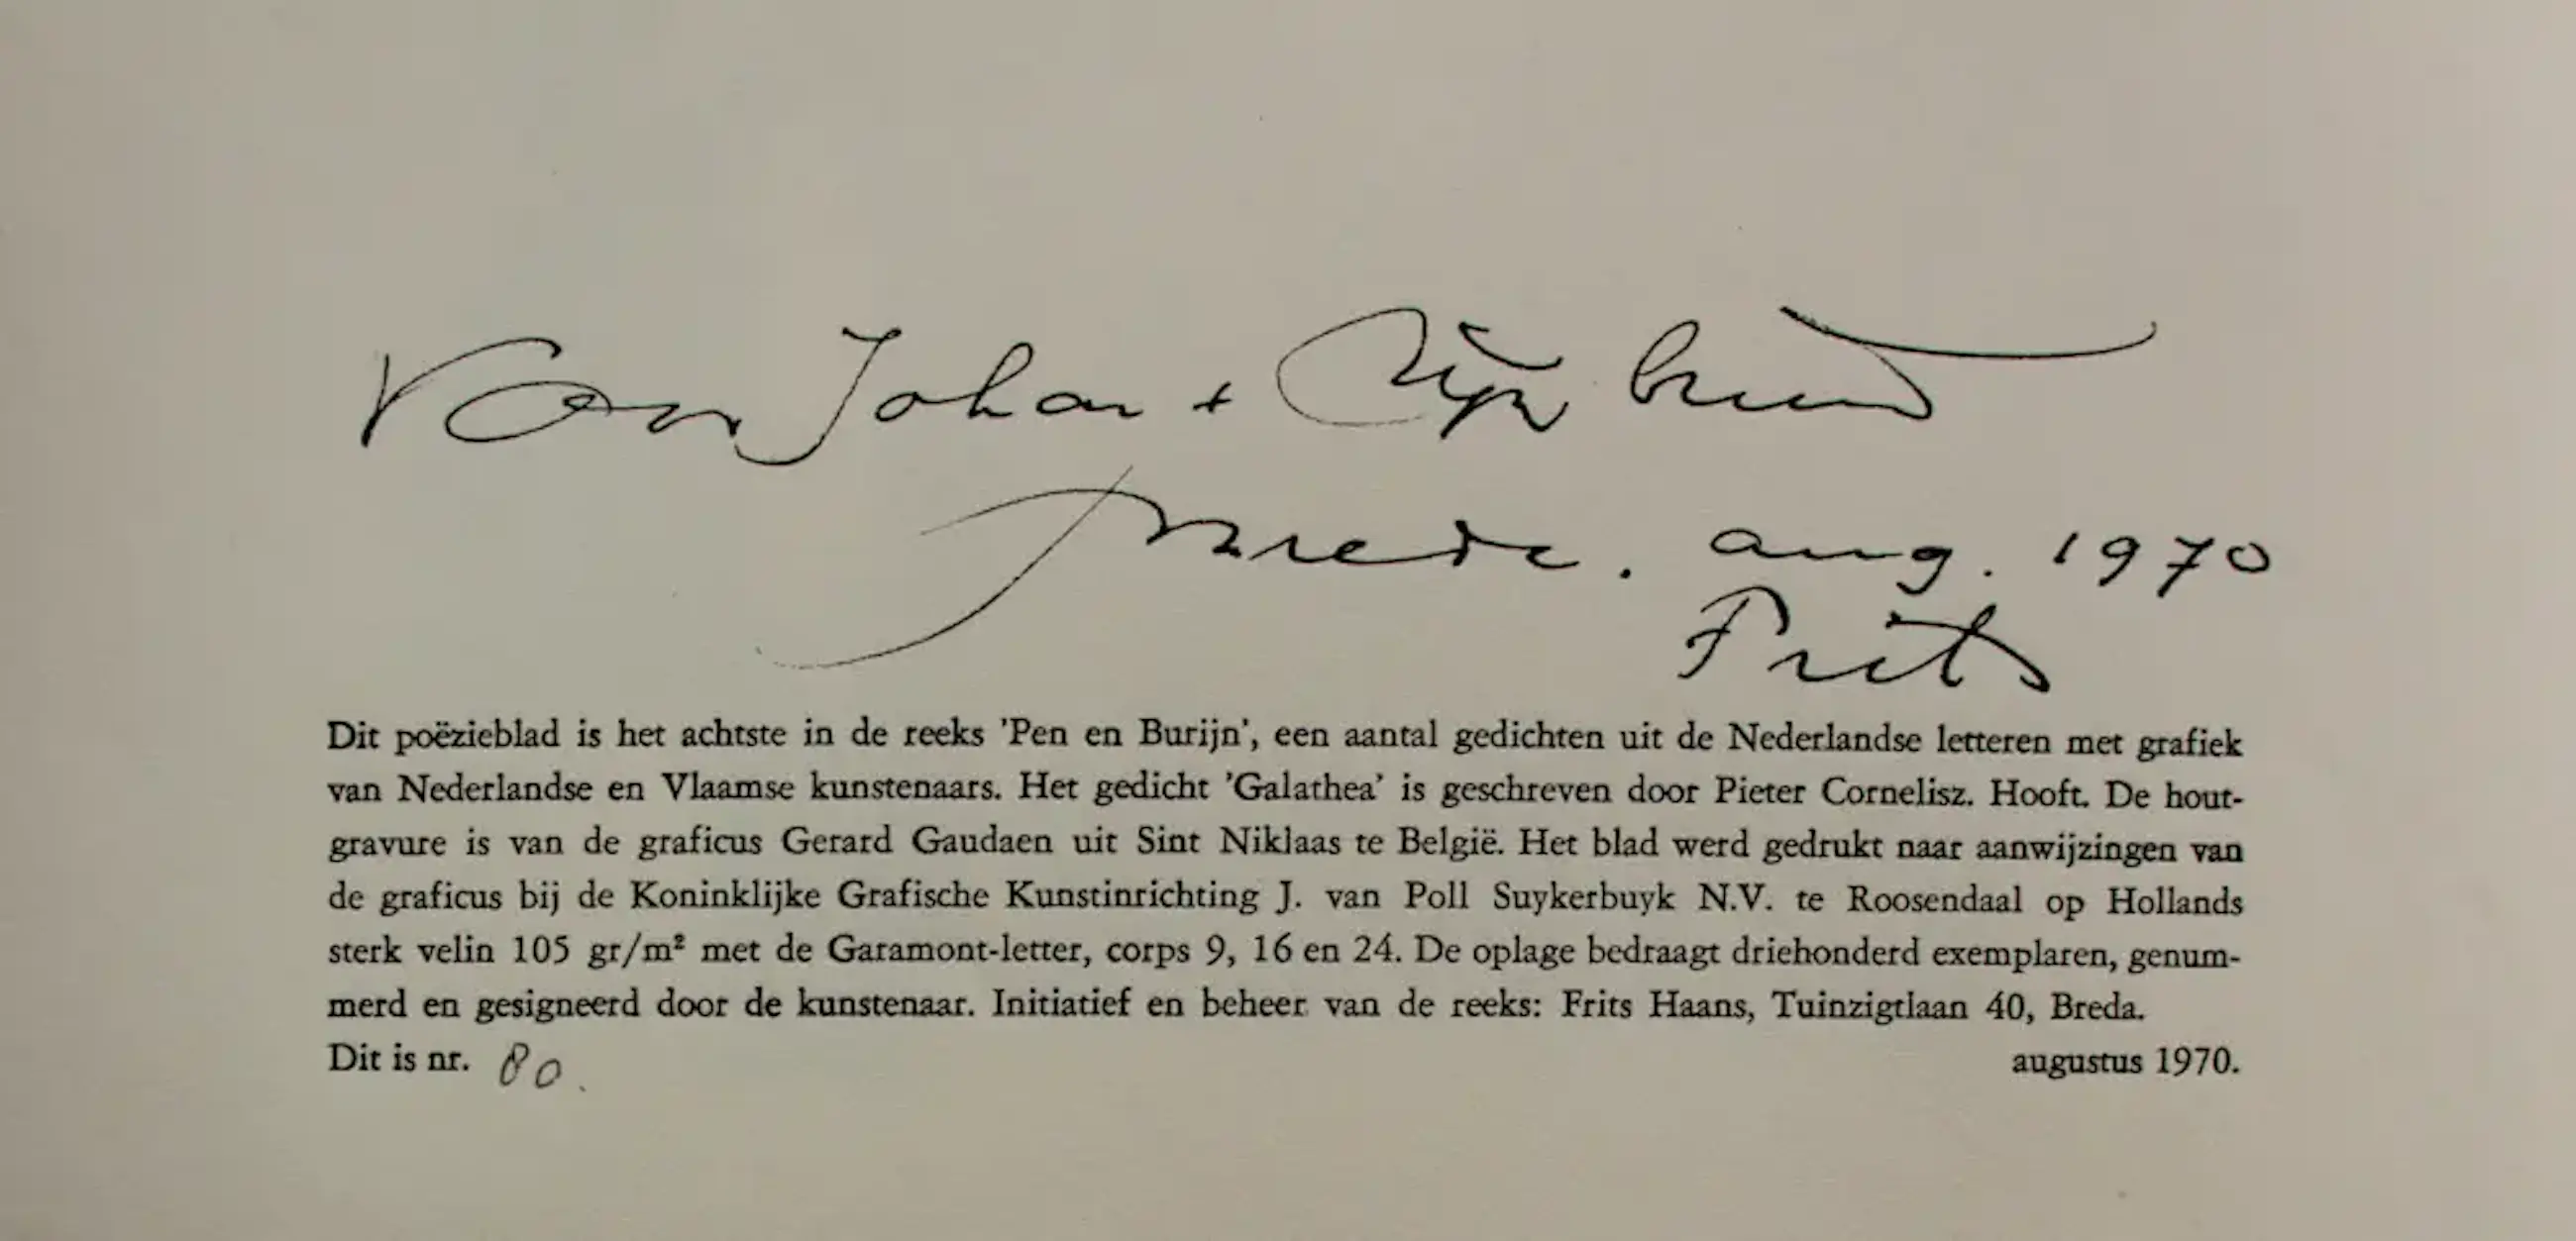 Van Johan +
aug. 1970
Frits
Dit poëzieblad is het achtste in de reeks 'Pen en Burijn', een aantal gedichten uit de Nederlandse letteren met grafiek
van Nederlandse en Vlaamse kunstenaars. Het gedicht 'Galathea' is geschreven door Pieter Cornelisz. Hooft. De hout-
gravure is van de graficus Gerard Gaudaen uit Sint Niklaas te België. Het blad werd gedrukt naar aanwijzingen van
de graficus bij de Koninklijke Grafische Kunstinrichting J. van Poll Suykerbuyk N.V. te Roosendaal op Hollands
sterk velin 105 gr/m² met de Garamont-letter, corps 9, 16 en 24. De oplage bedraagt driehonderd exemplaren, genum-
merd en gesigneerd door de kunstenaar. Initiatief en beheer van de reeks: Frits Haans, Tuinzigtlaan 40, Breda.
Dit is nr. 80. augustus 1970.